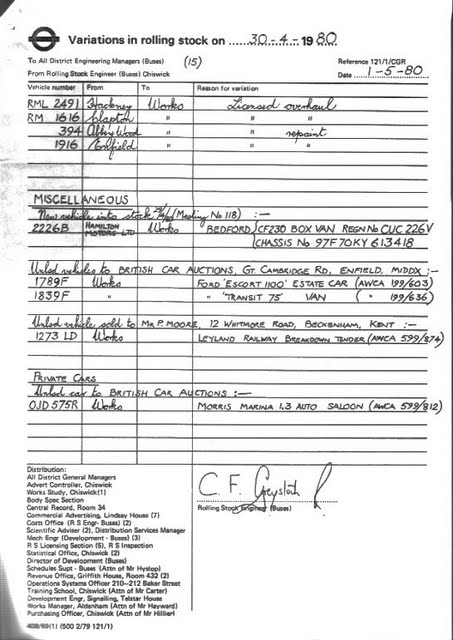 Variations in rolling stock on 30-4-1980
To All District Engineering Managers (Buses) (15) Reference 121/1/CGR
From Rolling Stock Engineer (Buses) Chiswick Date 1-5-80
Vehicle number From To Reason for variation
RML 2491 Hackney Works Licensed overhaul
RM 1616 Clapton " " "
394 Abbey Wood " " repaint
1916 Enfield " " "
MISCELLANEOUS
New vehicle into stock (Meeting No 118) :-
2226B HAMILTON MOTORS LTD Works BEDFORD CF230 BOX VAN REGN No CUC 226V
CHASSIS No 97F70KY 613418
Unlsd vehicles to BRITISH CAR AUCTIONS, GT. CAMBRIDGE RD, ENFIELD, MIDDX :-
1789F Works FORD 'ESCORT 1100' ESTATE CAR (AWCA 199/603)
1839F " " 'TRANSIT 75' VAN ( " 199/636)
Unlsd vehicle sold to MR P. MOORE, 12 WHITMORE ROAD, BECKENHAM, KENT :-
1273 LD Works LEYLAND RAILWAY BREAKDOWN TENDER (AWCA 599/874)
PRIVATE CARS
Unlsd car to BRITISH CAR AUCTIONS :-
OJD 575R Works MORRIS MARINA 1.3 AUTO SALOON (AWCA 599/812)
Distribution:
All District General Managers
Advert Controller, Chiswick
Works Study, Chiswick(1)
Body Spec Section
Central Record, Room 34
Commercial Advertising, Lindsay House (7)
Costs Office (R S Engr- Buses) (2)
Scientific Adviser (2), Distribution Services Manager
Mech Engr (Development - Buses) (3)
R S Licensing Section (5), R S Inspection
Statistical Office, Chiswick (2)
Director of Development (Buses)
Schedules Supt - Buses (Attn of Mr Hyslop)
Revenue Office, Griffith House, Room 432 (2)
Operations Systems Officer 210-212 Baker Street
Training School, Chiswick (Attn of Mr Carter)
Development Engr, Signalling, Telstar House
Works Manager, Aldenham (Attn of Mr Hayward)
Purchasing Officer, Chiswick (Attn of Mr Hillier)
C. F.
Rolling Stock Engineer (Buses)
(500 2/79 121/1)